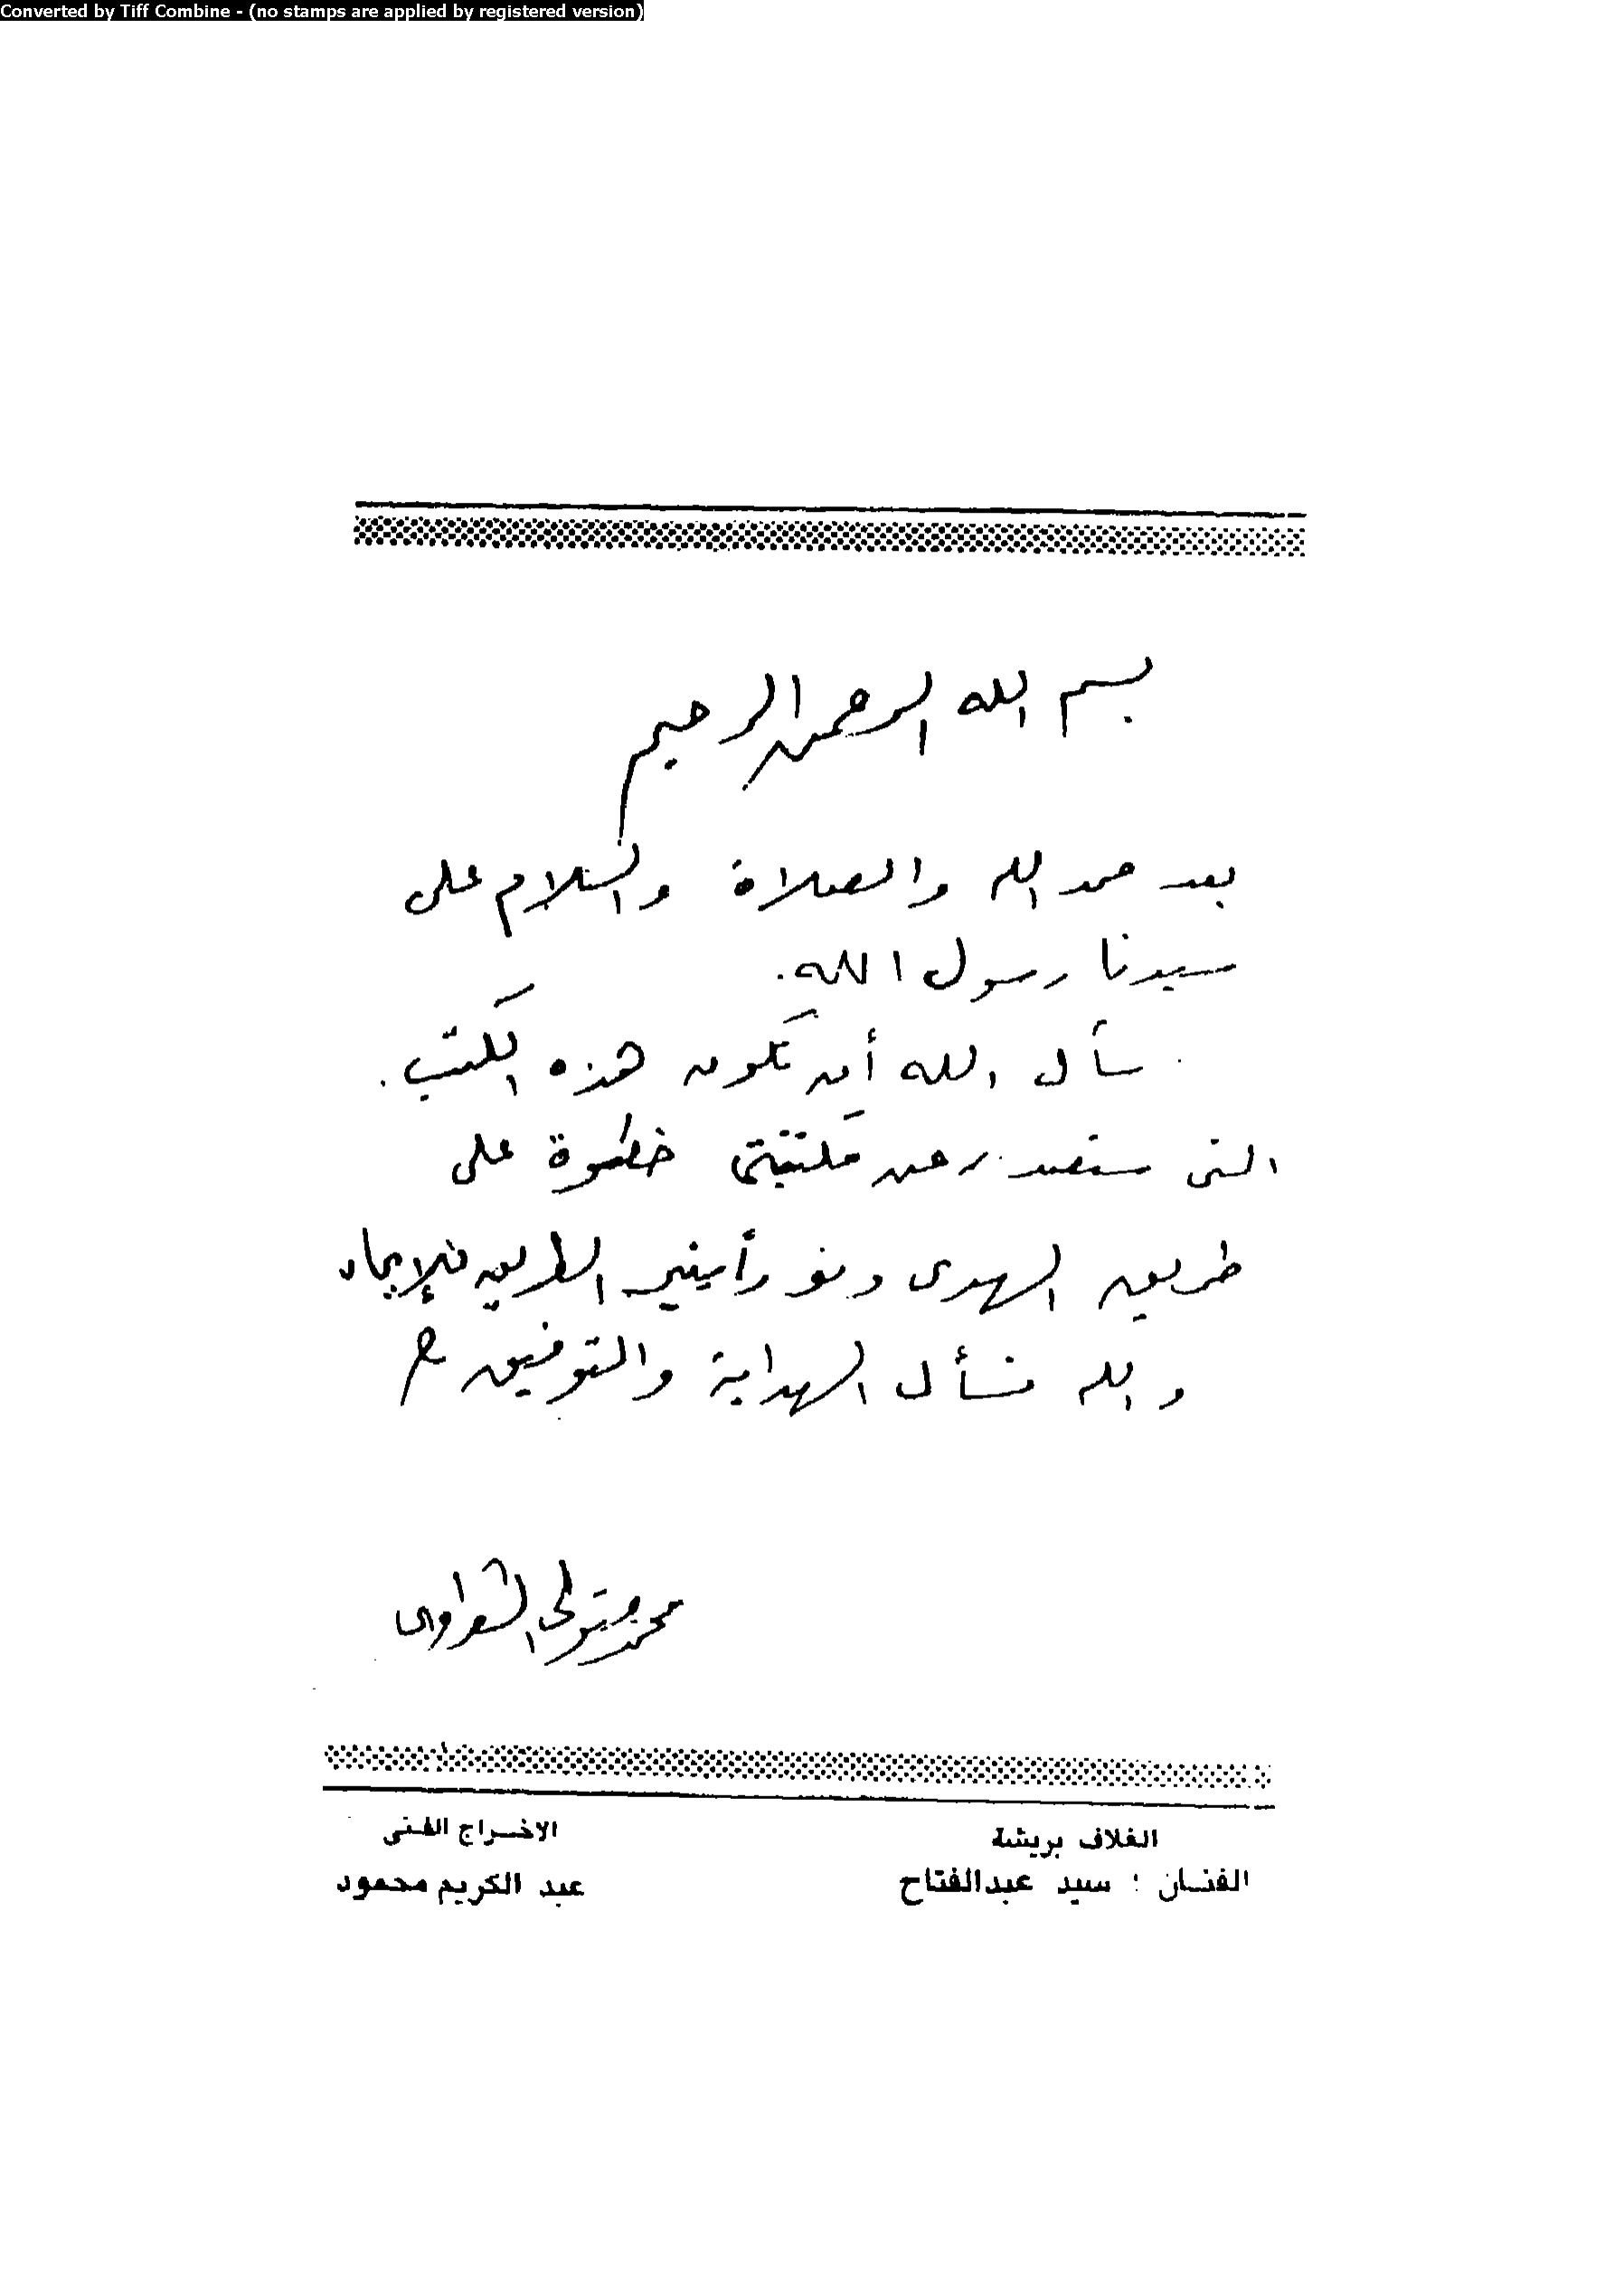 Converted by Tiff Combine - (no stamps are applied by registered version)
بسم الله الرحمن الرحيم
بعد حمد الله والصلاة والسلام على
سيدنا رسول الله.
نسأل الله أن تكون هذه الكتب.
التى ستصدر عن مكتبتى خطوة على
طريق الهدى ونورا ينير الطريق للإيمان
والله نسأل الهداية والتوفيق
محمد متولى الشعراوى
الغلاف بريشة
الفنان : سيد عبدالفتاح
الاخراج الفنى
عبد الكريم محمود